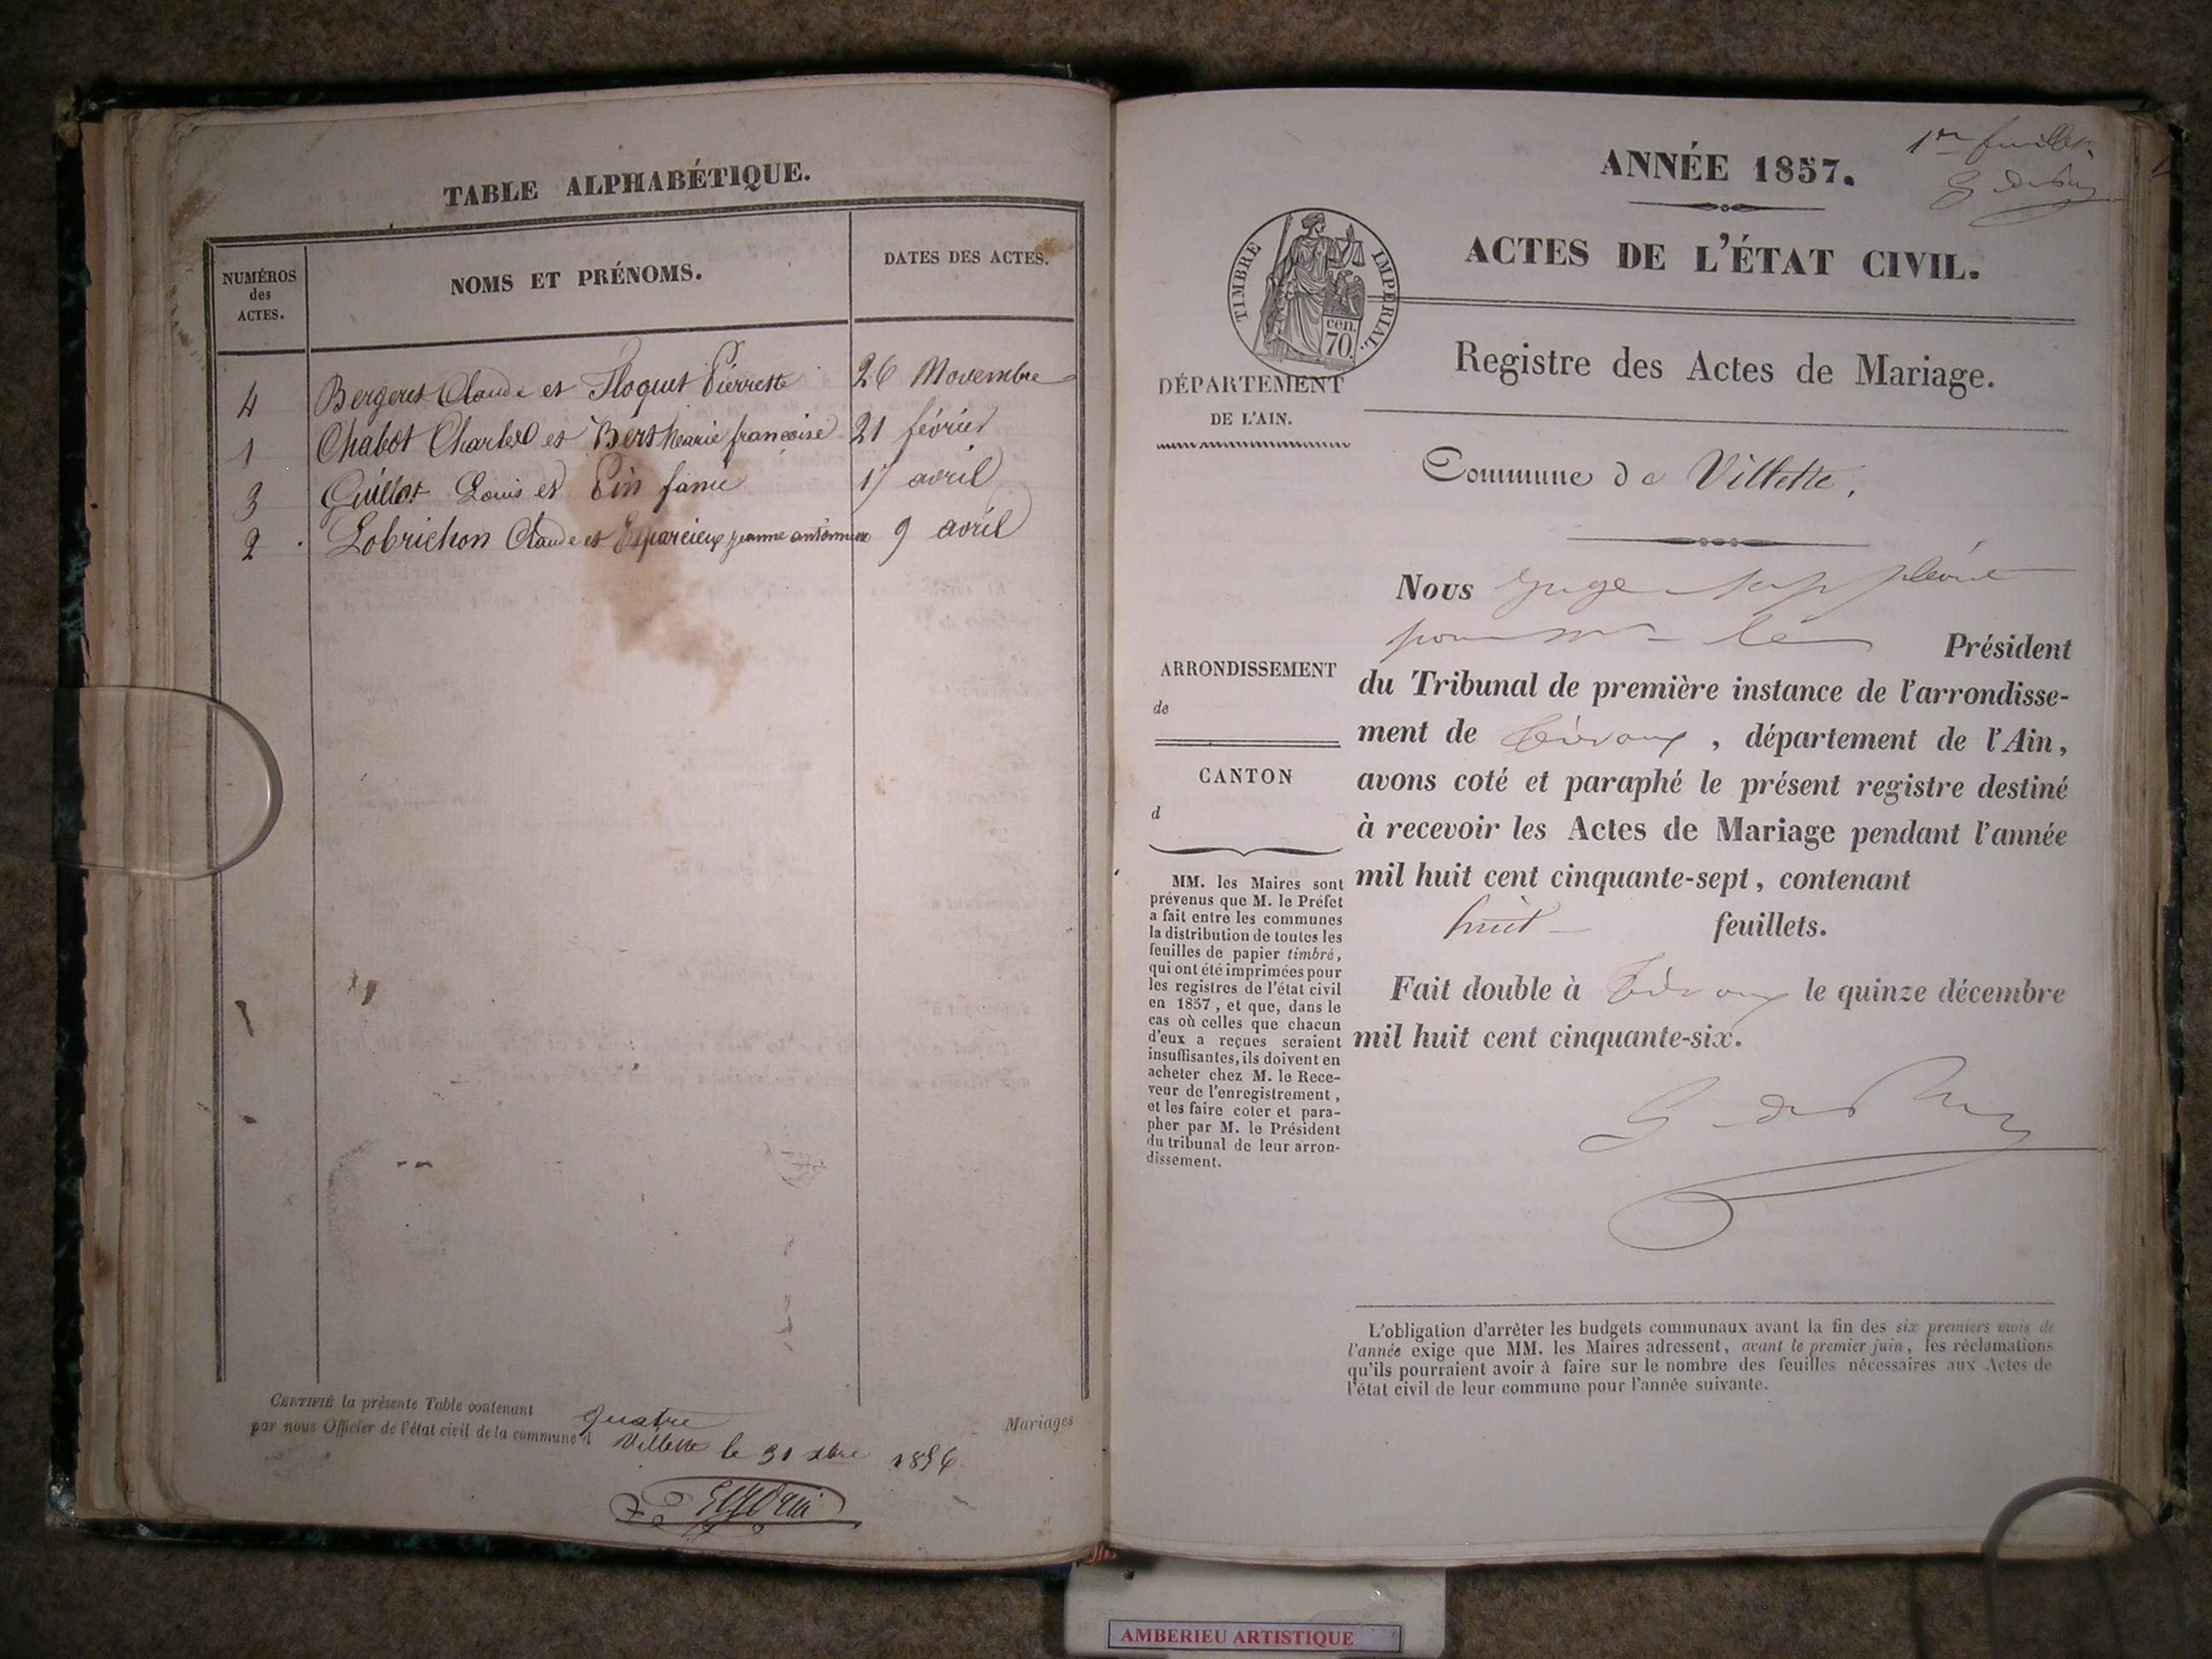 TABLE ALPHABÉTIQUE.
NUMÉROS
des
ACTES.
NOMS ET PRÉNOMS.
DATES DES ACTES.
4 Bergeret Claude et Floquet Pierrette 26 Novembre
1 Chabot Charles et Bert marie françoise 21 février
3 Guillot Louis et Pin fanie 17 avril
2 Lobrichon Claude et Esparcieux jeanne antoinine 9 avril
CERTIFIÉ la présente Table contenant quatre Mariages
par nous Officier de l'état civil de la commune d Villette le 31 xbre 1856
1er feuillet
ANNÉE 1857.
ACTES DE L'ÉTAT CIVIL.
TIMBRE IMPÉRIAL.
cen.
70.
Registre des Actes de Mariage.
DÉPARTEMENT
DE L'AIN.
Commune de Villette.
Nous juge suppléant
pour Mr le Président
du Tribunal de première instance de l'arrondisse-
ment de Trévoux, département de l'Ain,
avons coté et paraphé le présent registre destiné
à recevoir les Actes de Mariage pendant l'année
mil huit cent cinquante-sept, contenant
huit feuillets.
Fait double à Trévoux le quinze décembre
mil huit cent cinquante-six.
ARRONDISSEMENT
de
CANTON
d
MM. les Maires sont
prévenus que M. le Préfet
a fait entre les communes
la distribution de toutes les
feuilles de papier timbré,
qui ont été imprimées pour
les registres de l'état civil
en 1857, et que, dans le
cas où celles que chacun
d'eux a reçues seraient
insuffisantes, ils doivent en
acheter chez M. le Rece-
veur de l'enregistrement,
et les faire coter et para-
pher par M. le Président
du tribunal de leur arron-
dissement.
L'obligation d'arrêter les budgets communaux avant la fin des six premiers mois de
l'année exige que MM. les Maires adressent, avant le premier juin, les réclamations
qu'ils pourraient avoir à faire sur le nombre des feuilles nécessaires aux Actes de
l'état civil de leur commune pour l'année suivante.
AMBERIEU ARTISTIQUE